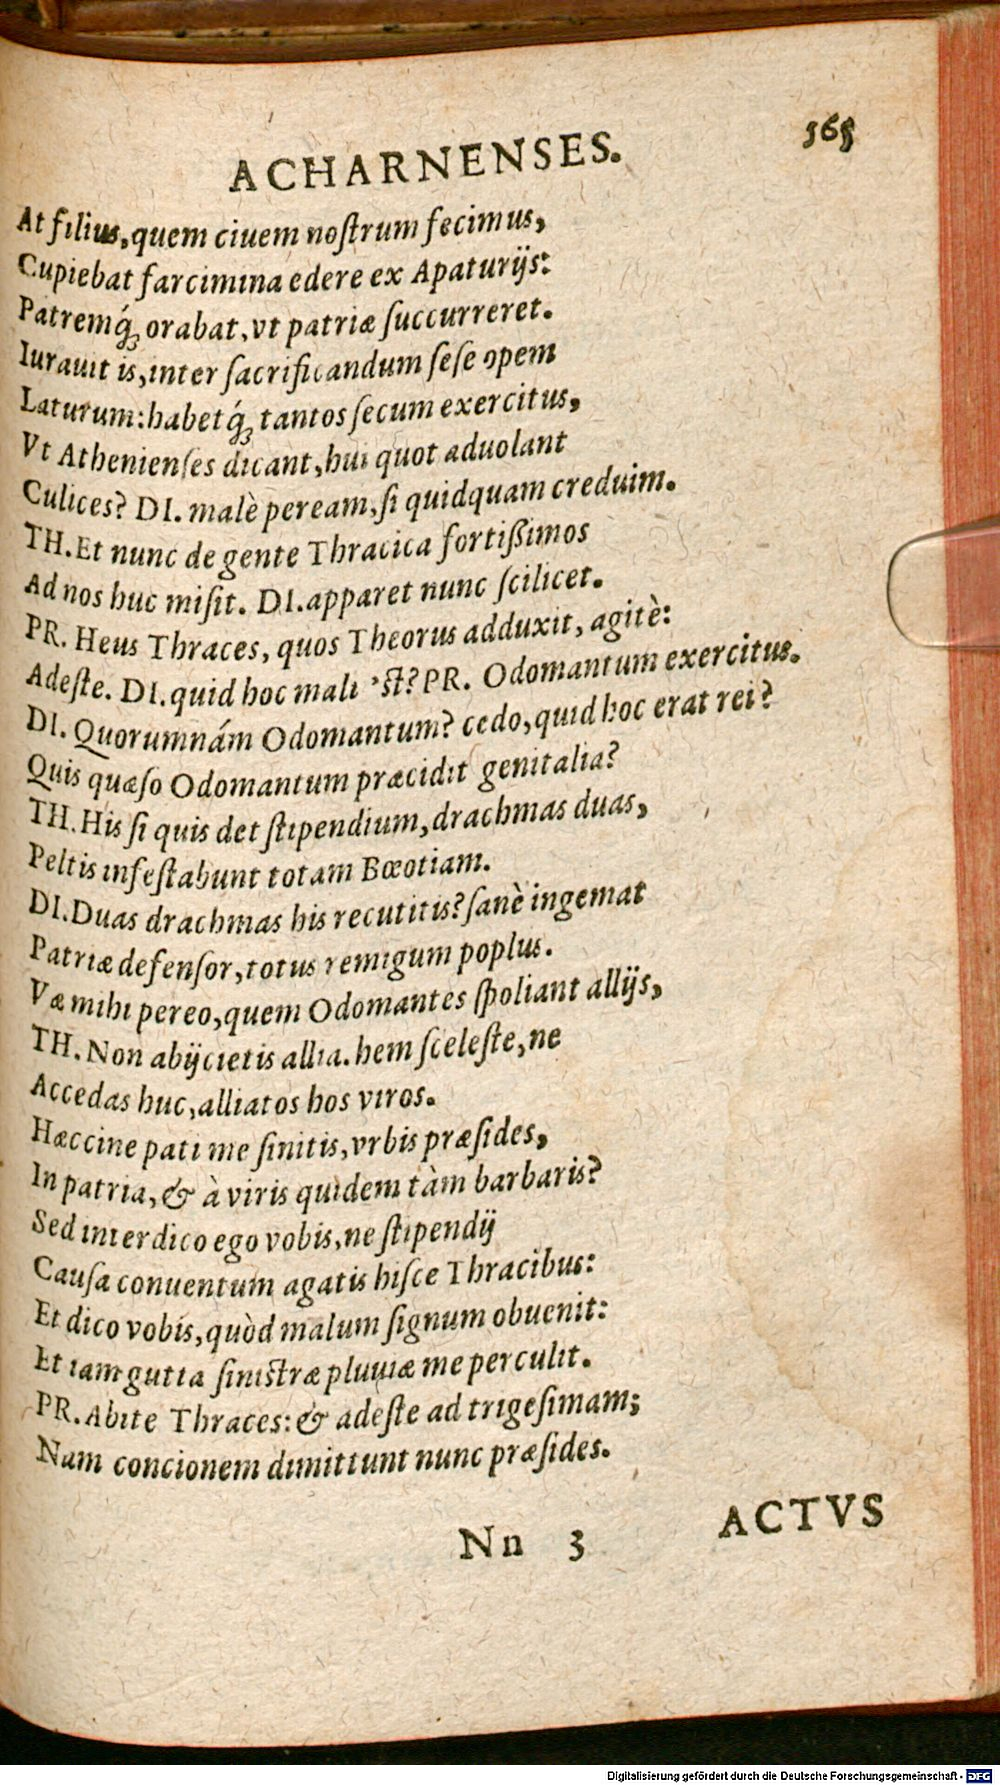 ACHARNENSES. 565
At filius, quem ciuem noſtrum fecimus,
Cupiebat farcimina edere ex Apaturijs:
Patremq́; orabat, vt patriæ ſuccurreret.
Iurauit is, inter ſacrificandum ſeſe opem
Laturum: habetq́; tantos ſecum exercitus,
Vt Athenienſes dicant, hui quot aduolant
Culices? DI. malè peream, ſi quidquam creduim.
TH. Et nunc de gente Thracica fortißimos
Ad nos huc miſit. DI. apparet nunc ſcilicet.
PR. Heus Thraces, quos Theorus adduxit, agitè:
Adeſte. DI. quid hoc mali 'ſt? PR. Odomantum exercitus.
DI. Quorumnám Odomantum? cedo, quid hoc erat rei?
Quis quæſo Odomantum præcidit genitalia?
TH. His ſi quis det ſtipendium, drachmas duas,
Peltis infeſtabunt totam Bœotiam.
DI. Duas drachmas his recutitis? ſanè ingemat
Patriæ defenſor, totus remigum poplus.
Væ mihi pereo, quem Odomantes ſpoliant allijs,
TH. Non abijcietis allia. hem ſceleſte, ne
Accedas huc, alliatos hos viros.
Hæccine pati me ſinitis, vrbis præſides,
In patria, & à viris quidem tàm barbaris?
Sed interdico ego vobis, ne ſtipendij
Cauſa conuentum agatis hiſce Thracibus:
Et dico vobis, quòd malum ſignum obuenit:
Et iam gutta ſiniſtræ pluuiæ me perculit.
PR. Abite Thraces: & adeſte ad trigeſimam;
Nam concionem dimittunt nunc præſides.
Nn 3 ACTVS
Digitalisierung gefördert durch die Deutsche Forschungsgemeinschaft - DFG